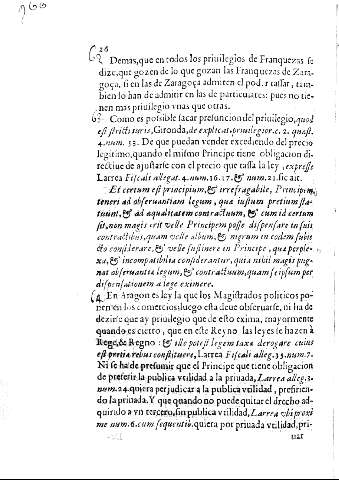 26
62 Demas, que en todos los priuilegios de Franquezas se
dize, que gozen de lo que gozan las Franquezas de Zara-
goça, si en las de Zaragoça admiten el poder tassar, tam-
bien lo han de admitir en las de particulares: pues no tie-
nen mas priuilegio vnas que otras.
63 Como es posible sacar presuncion del priuilegio, quod
est stricti iuris, Gironda, de explicat. priuilegior. c. 2. quæst.
4. num. 33. De que puedan vender excediendo del precio
legitimo, quando el mismo Principe tiene obligacion di-
rectiue de ajustarse con el precio que tassa la ley, expresse
Larrea Fiscali allegat. 4. num. 16. 17. & num. 21. sic ait.
Et certum est principium, & irrefragabile, Principem,
teneri ad obseruantiam legum, qua iustum pretium sta-
tuunt, & ad aqualitatem contractuum, & cum id certum
sit, non magis erit velle Principem posse dispensare in suis
contractibus, quam velle album, & nigrum in eodem subie
cto considerare, & velle sustinere in Principe, qua perple-
xa, & incompatibilia considerantur, quia nihil magis pug-
nat obseruantia legum, & contractuum, quam se ipsum per
dispensationem a lege eximere.
64 En Aragon es ley la que los Magistrados politicos po-
nen en los comercios, luego esta deue obseruarse, ni ha de
dezirse que ay priuilegio que de esto exima, mayormente
quando es cierto, que en este Reyno las leyes se hazen à
Rege, & Regno: & ille potest legem taxa derogare cuius
est pertia rebus constituere, Larrea Fiscali alleg. 35. num. 7.
Ni se ha de presumir que el Principe que tiene obligacion
de preferir la publica vtilidad a la priuada, Larrea alleg. 3.
num. 24. quiera perjudicar a la publica vtilidad, prefirien-
do la priuada. Y que quando no puede quitar el derecho ad-
quirido a vn tercero, sin publica vtilidad, Larrea vbi proxi
me num. 6. cum sequentib. quiera por priuada vtilidad, pri-
uar